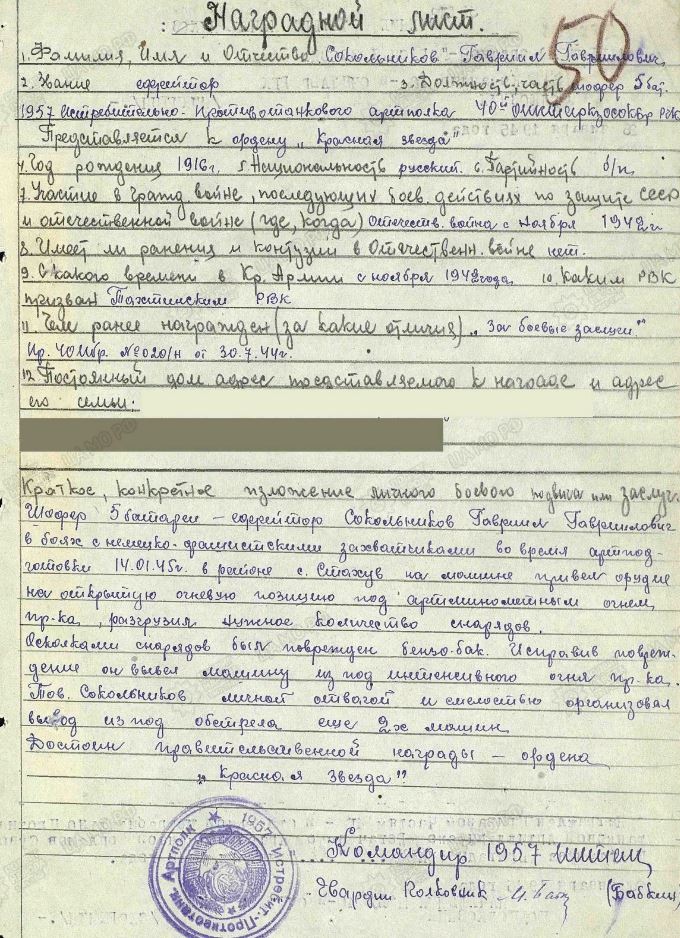 Наградной лист.
50
1. Фамилия, Имя и Отчество Сокольников Гавриил Гавриилович
2. Звание ефрейтор 3. Должность, часть шофер 5 бат.
1957 Истребительно-Противотанкового артполка 40ой
Представляется к ордену „Красная звезда"
4. Год рождения 1916г. 5. Национальность русский. 6. Партийность б/п.
7. Участие в гражд войне, последующих боев. действиях по защите СССР
и отечественной войне (где, когда) Отечеств. война с Ноября 1942 г.
8. Имеет ли ранения и контузии в Отечественн. войне нет.
9. С какого времени в Кр. Армии с ноября 1942 года. 10. Каким РВК
призван Тахтинским РВК
11. Чем ранее награжден (за какие отличия) „За боевые заслуги"
Пр. 40 Ибр. № 020/н от 30.7.44г.
12. Постоянный дом адрес представляемого к награде и адрес
его семьи:
Краткое, конкретное изложение личного боевого подвига или заслуг.
Шофер 5 батареи – ефрейтор Сокольников Гавриил Гавриилович
в боях с немецко-фашистскими захватчиками во время артпод-
готовки 14.01.45г. в районе с. Стахув на машине привел орудие
на открытую огневую позицию под артминометным огнем
пр-ка, разгрузил нужное количество снарядов.
Осколками снарядов был поврежден бензо-бак. Исправив повреж-
дение он вывел машину из под интенсивного огня пр-ка.
Тов. Сокольников личной отвагой и смелостью организовал
вывод из под обстрела еще 2х машин
Достоин правительственной награды – ордена
„Красная Звезда".
1957 Истребит.-Противотанк. Артполк
Командир 1957 иптап
Гвардии Полковник (Бабкин)